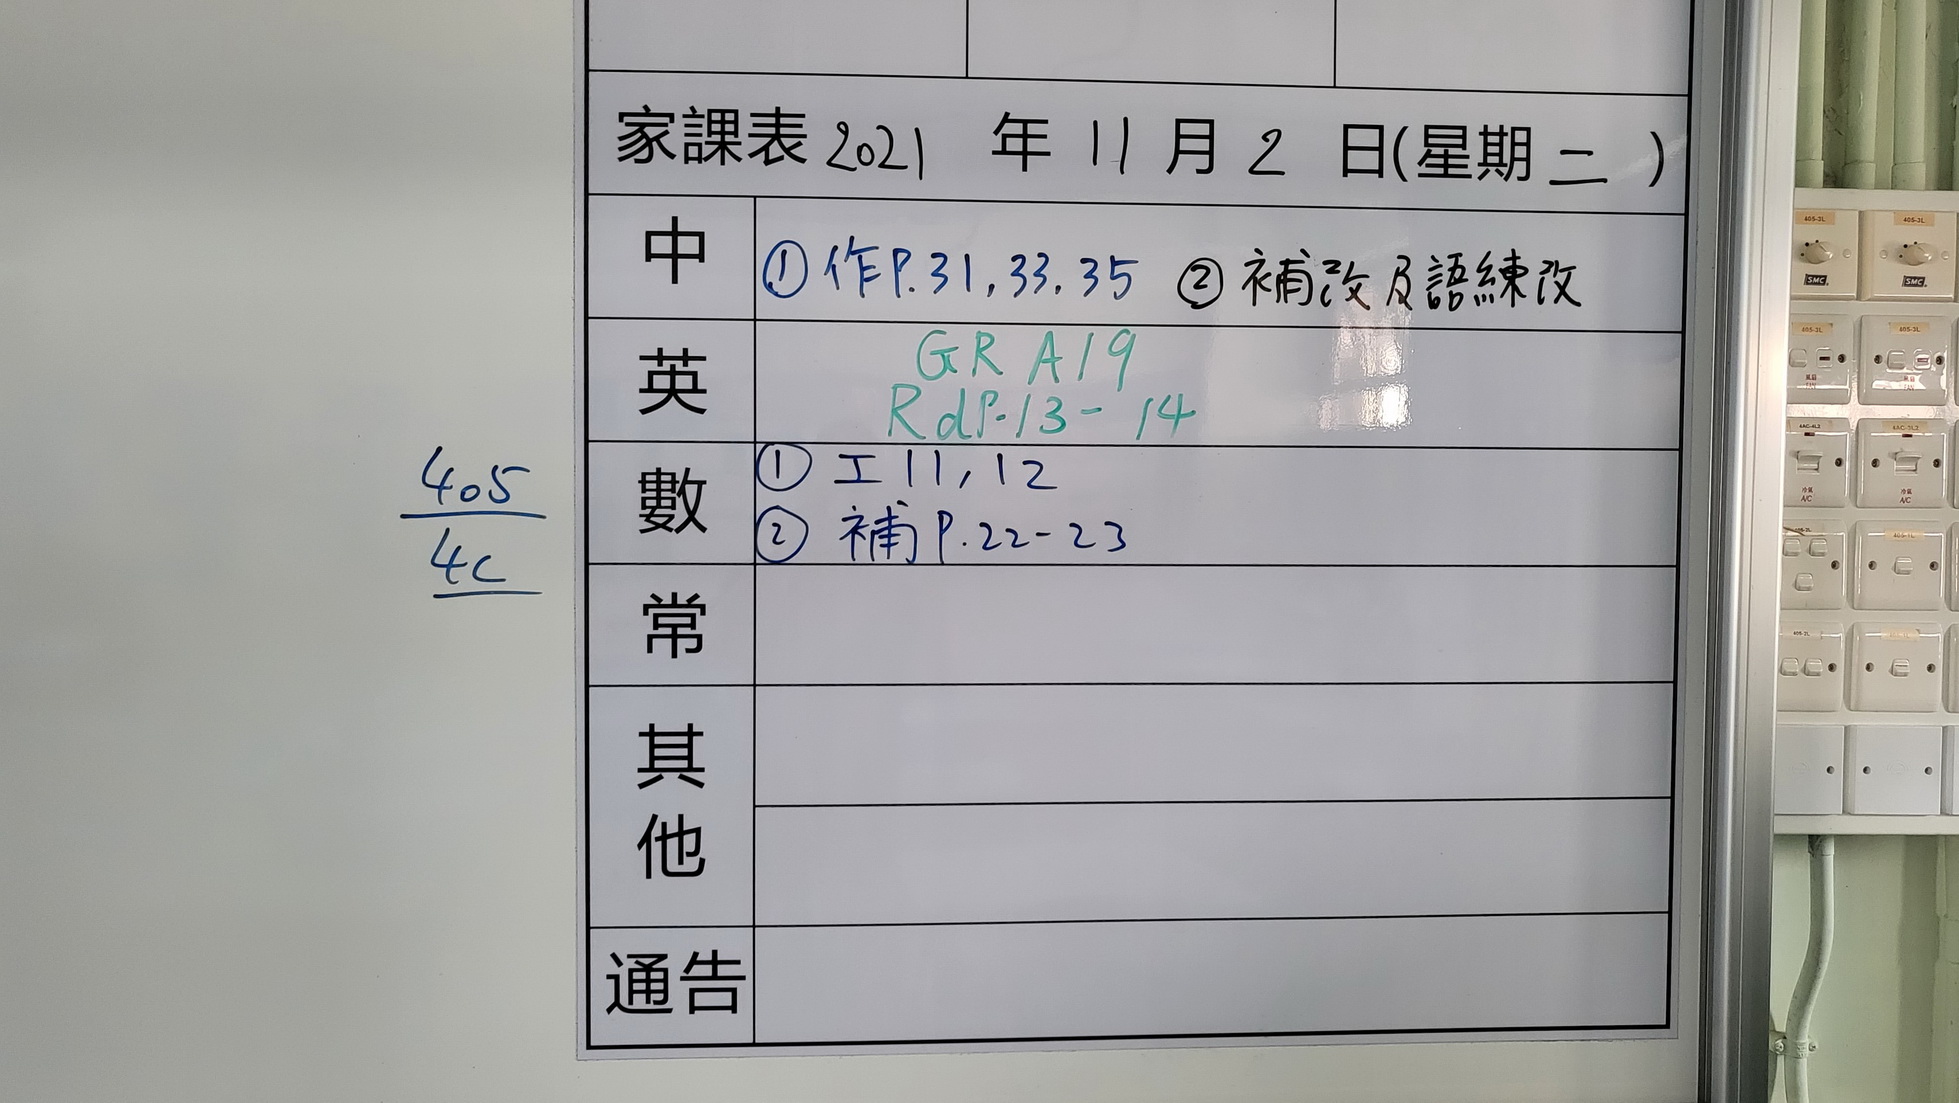 家課表 2021 年 11 月 2 日(星期二)
中 ① 作P.31, 33. 35 ② 補改及語練改
英 GR A19
RdP.13-14
數 ① 工 11, 12
② 補 P.22-23
405
4C
常
其他
通告
405-3L 405-3L
SMC SMC
405-3L 405-3L
風扇 FAN 風扇 FAN
4AC-4L2 4AC-3L2
冷氣 A/C 冷氣 A/C